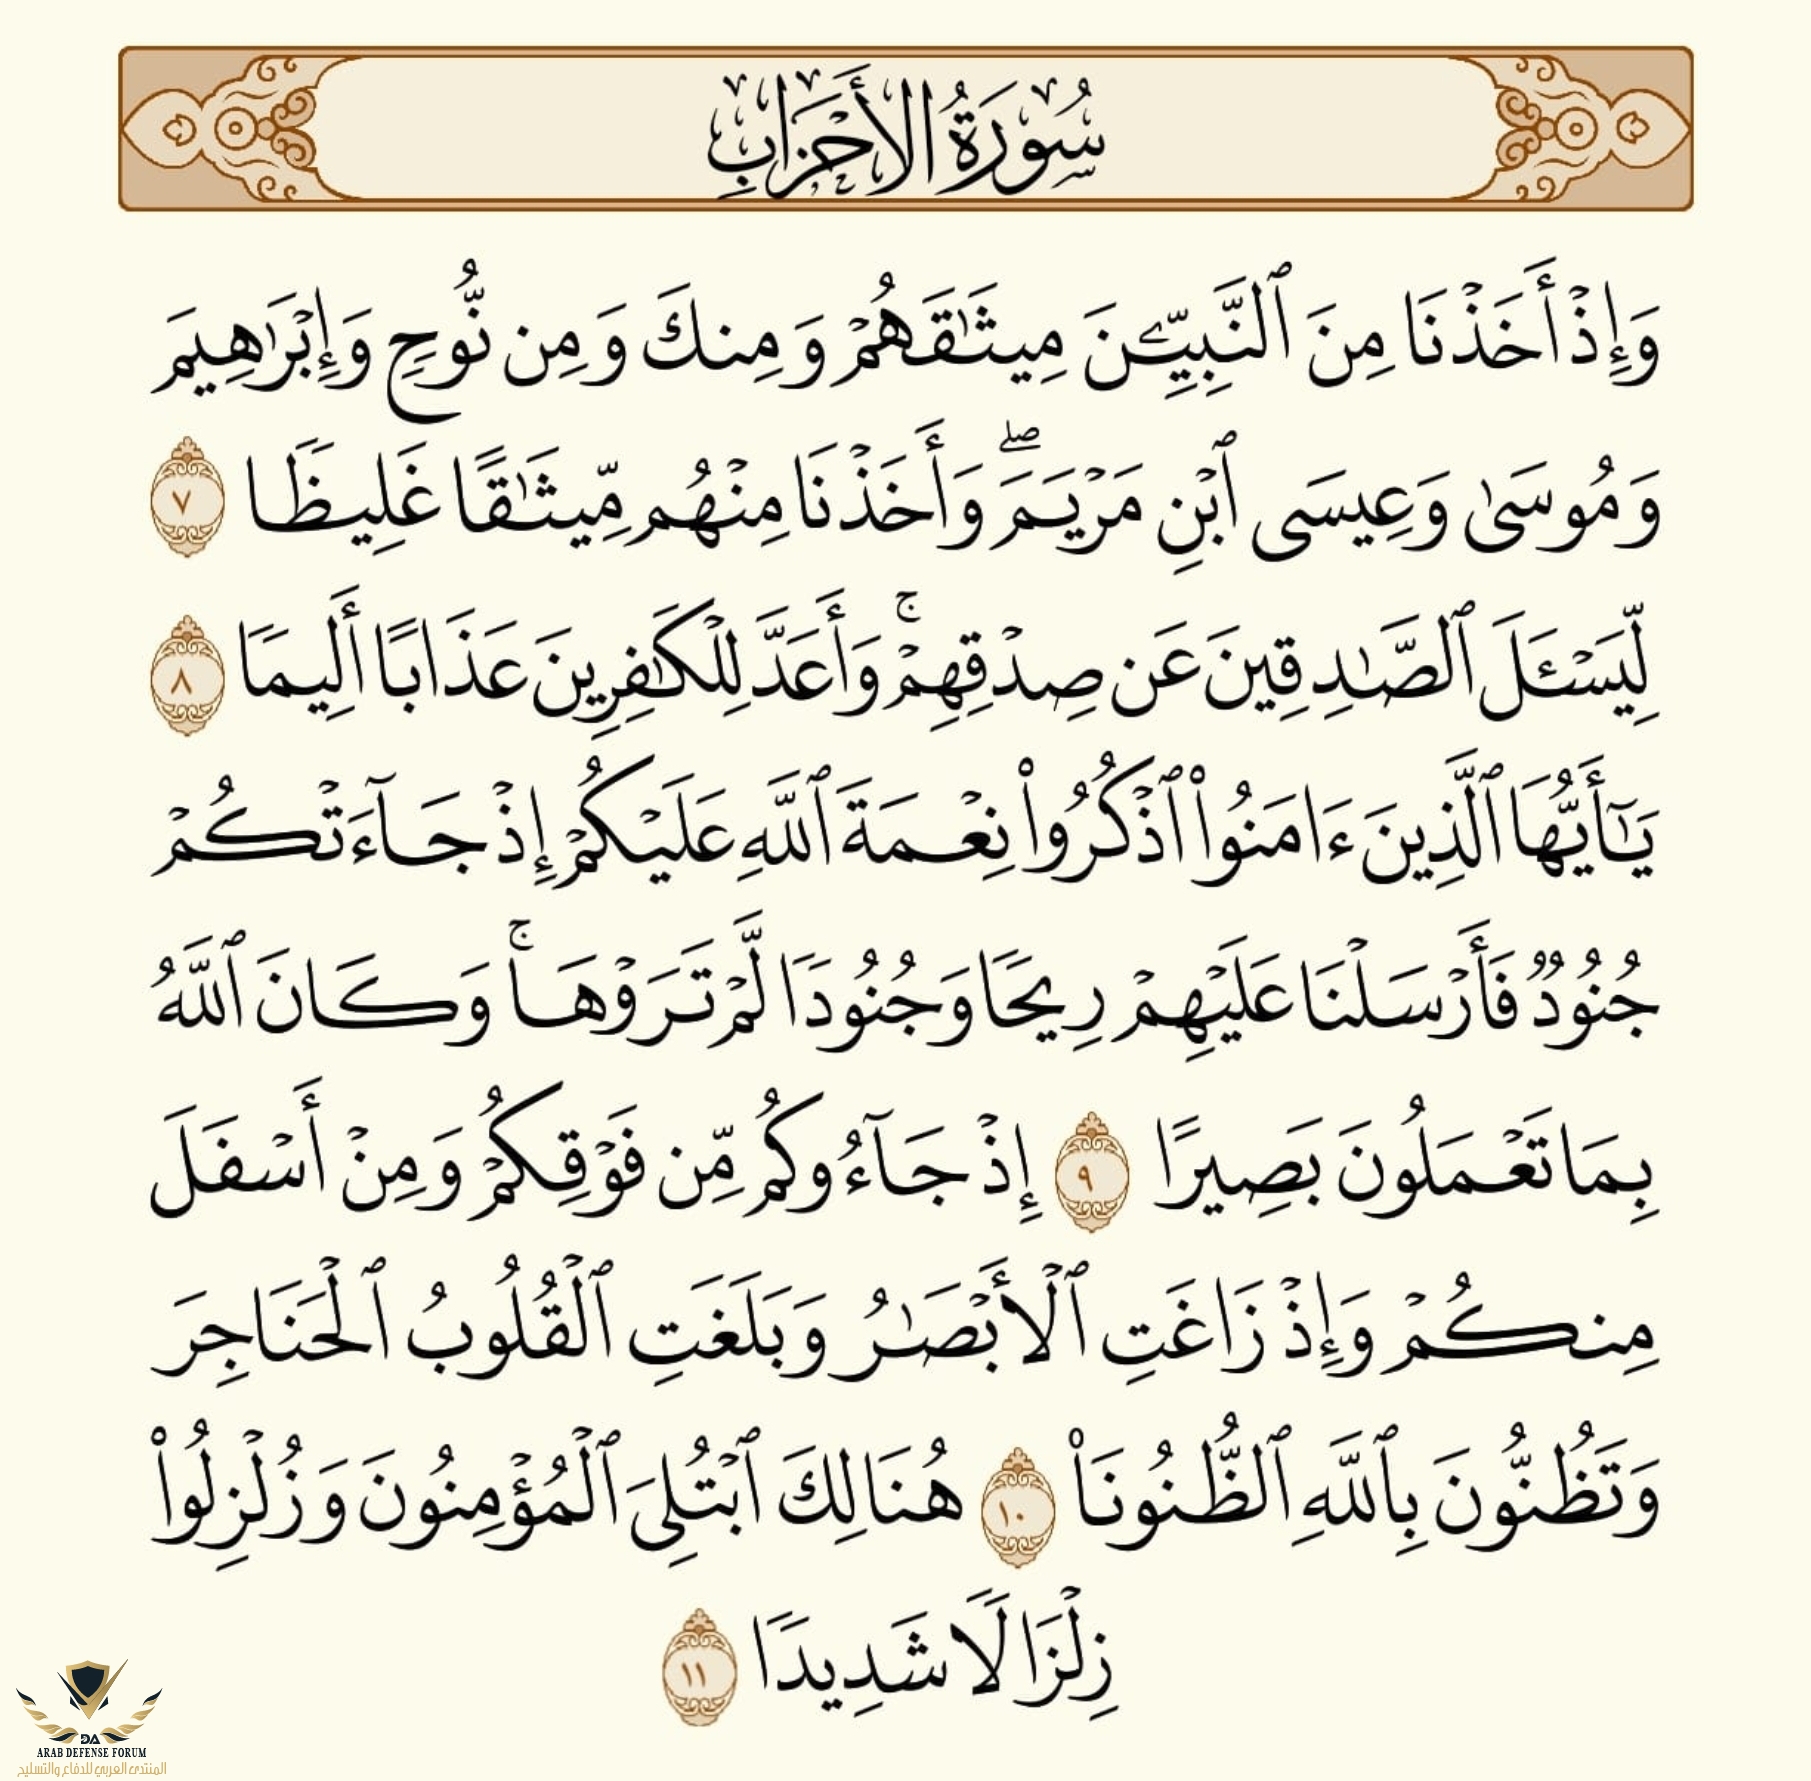 سُورَةُ الأَحْزَابِ
وَإِذۡ أَخَذۡنَا مِنَ ٱلنَّبِيِّـۧنَ مِيثَٰقَهُمۡ وَمِنكَ وَمِن نُّوحٖ وَإِبۡرَٰهِيمَ
وَمُوسَىٰ وَعِيسَى ٱبۡنِ مَرۡيَمَۖ وَأَخَذۡنَا مِنۡهُم مِّيثَٰقًا غَلِيظٗا ٧
لِّيَسۡـَٔلَ ٱلصَّٰدِقِينَ عَن صِدۡقِهِمۡۚ وَأَعَدَّ لِلۡكَٰفِرِينَ عَذَابًا أَلِيمٗا ٨
يَٰٓأَيُّهَا ٱلَّذِينَ ءَامَنُواْ ٱذۡكُرُواْ نِعۡمَةَ ٱللَّهِ عَلَيۡكُمۡ إِذۡ جَآءَتۡكُمۡ
جُنُودٞ فَأَرۡسَلۡنَا عَلَيۡهِمۡ رِيحٗا وَجُنُودٗا لَّمۡ تَرَوۡهَاۚ وَكَانَ ٱللَّهُ
بِمَا تَعۡمَلُونَ بَصِيرًا ٩ إِذۡ جَآءُوكُم مِّن فَوۡقِكُمۡ وَمِنۡ أَسۡفَلَ
مِنكُمۡ وَإِذۡ زَاغَتِ ٱلۡأَبۡصَٰرُ وَبَلَغَتِ ٱلۡقُلُوبُ ٱلۡحَنَاجِرَ
وَتَظُنُّونَ بِٱللَّهِ ٱلظُّنُونَا۠ ١٠ هُنَالِكَ ٱبۡتُلِيَ ٱلۡمُؤۡمِنُونَ وَزُلۡزِلُواْ
زِلۡزَالٗا شَدِيدٗا ١١
DA
ARAB DEFENSE FORUM
المنتدى العربي للدفاع والتسليح